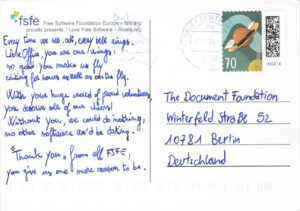 fsfe Free Software Foundation Europe - fsfe.org
proudly presents: I Love Free Software - ilovefs.org
Every time we see odt, every bell rings.
LibreOffice, you are our wings:
so good you make us fly
editing for hours as well as on the fly.
With your huge crowd of proud volunteers,
you deserve all of our cheers!
Without you, we could do nothing,
no other software we'd be taking.
Thank you, from all FSFE,
you give us one more reason to be.
70
The Document Foundation
Winterfeld Straße 52
10781 Berlin
Deutschland